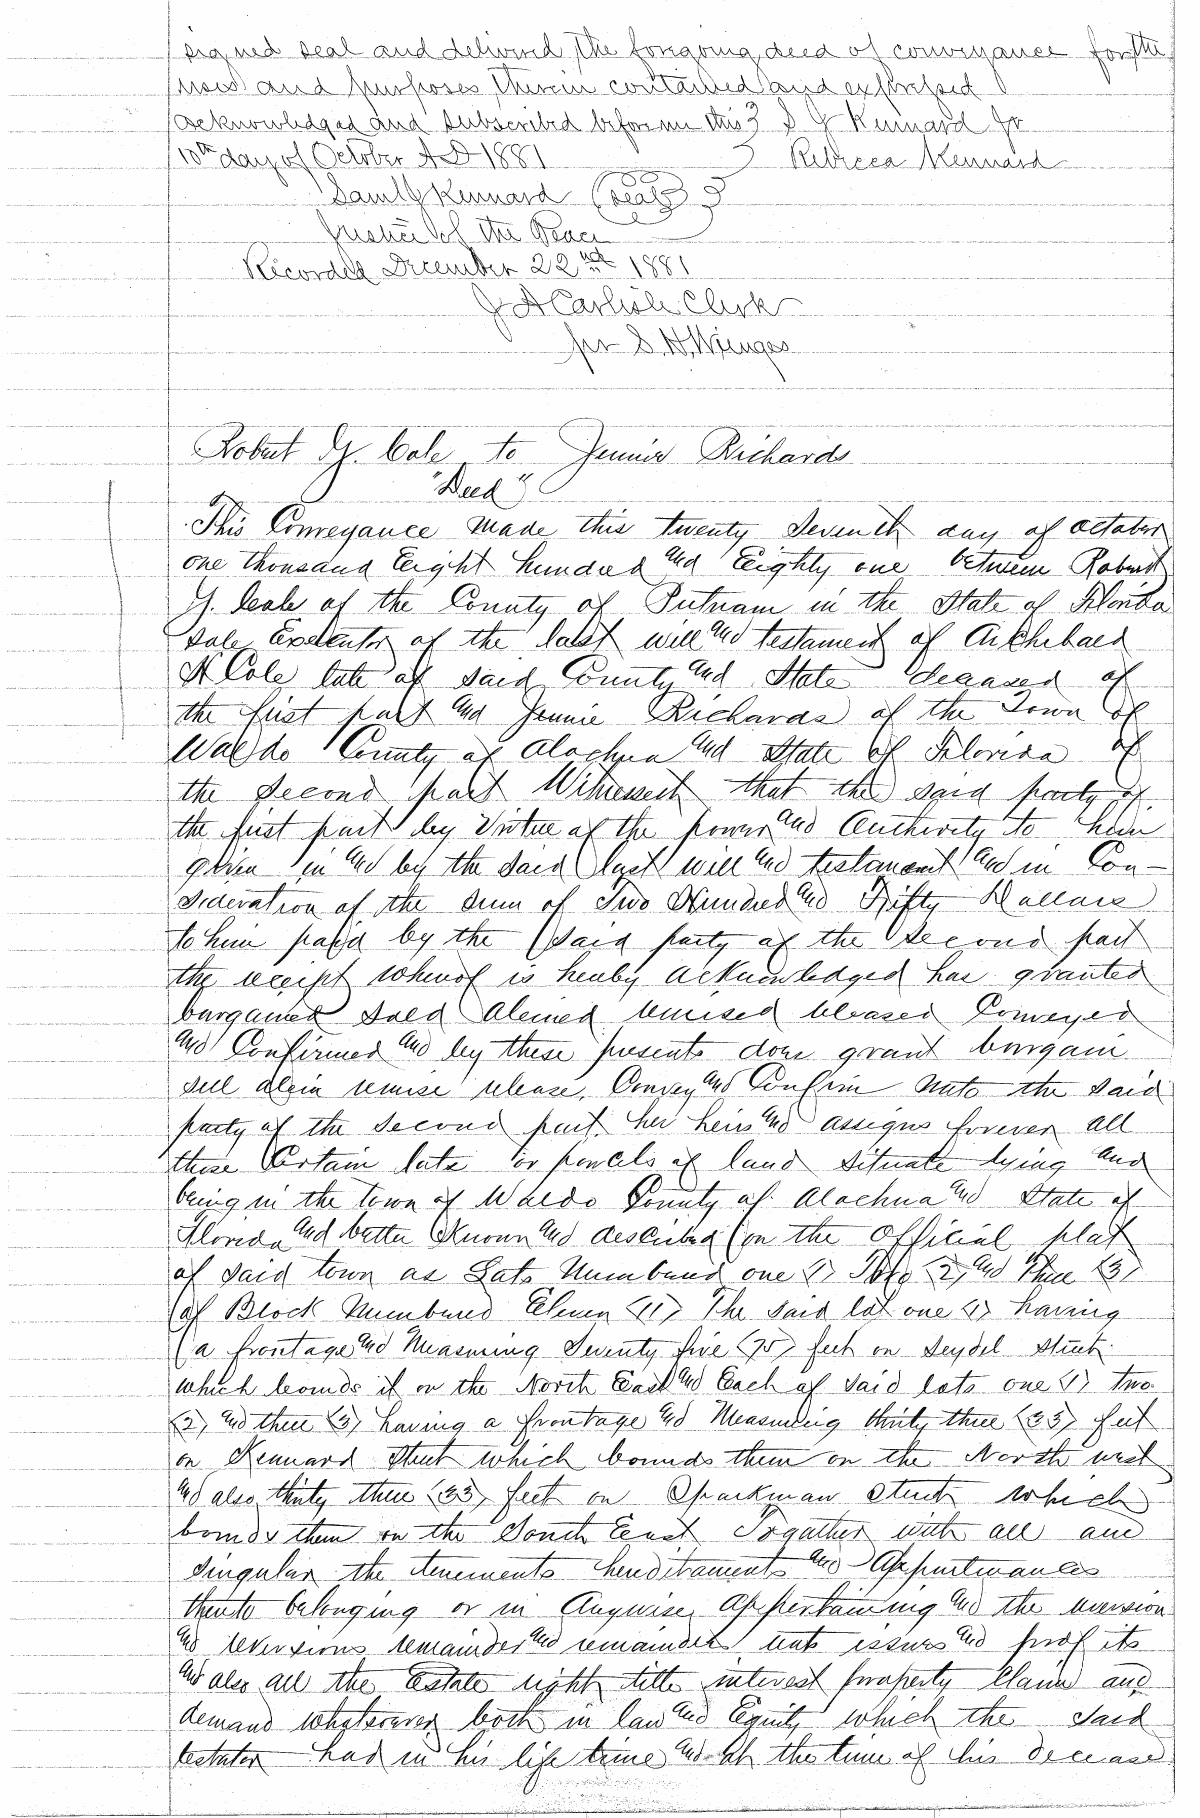 signed seal and delivered the foregoing deed of conveyance for the
uses and purposes therein contained and expressed
Acknowledged and subscribed before me this } S J Kennard Jr
10th day of October A D 1881 Rebecca Kennard
Saml J Kennard (seal)
Justice of the Peace
Recorded December 22nd 1881
J A Carlisle Clerk
pr S. H. Wienges
Robert G. Cole to Jennie Richards
"Deed"
This Conveyance made this twenty Seventh day of October
one thousand Eight hundred and Eighty one between Robert
G. Cole of the County of Putnam in the State of Florida
sole Executor of the last will and testament of Archibald
H Cole late of said County and State deceased of
the first part and Jennie Richards of the Town of
Waldo County of Alachua and State of Florida of
the second part Witnesseth that the said party of
the first part by Virtue of the power and Authority to him
given in and by the said last will and testament and in Con-
sideration of the sum of Two Hundred and Fifty Dollars
to him paid by the said party of the second part
the receipt whereof is hereby acknowledged has granted
bargained sold aliened remised released Conveyed
and Confirmed and by these presents does grant bargain
sell alein remise release, Convey and Confirm unto the said
party of the second part her heirs and assigns forever all
those Certain lots or parcels of land situate lying and
being in the town of Waldo County of Alachua and State of
Florida and better Known and described on the Official plat
of said town as Lots Numbered one (1) Two (2) and Three (3)
of Block Numbered Eleven (11) The said lot one (1) having
a frontage and Measuring Seventy five (75) feet on Seydel Street
which bounds it on the North East and Each of said lots one (1) two
(2) and three (3) having a frontage and Measuring thirty three (33) feet
on Kennard Street which bounds them on the North west
and also thirty three (33) feet on Sparkman Street which
bounds them on the South East Together with all and
singular the tenements hereditaments and Appurtenances
thereto belonging or in Anywise appertaining and the reversion
and reversions remainder and remainders rents issues and profits
and also all the Estate right title interest property Claim and
demand whatsoever both in law and Equity which the said
testator had in his life time and at the time of his decease